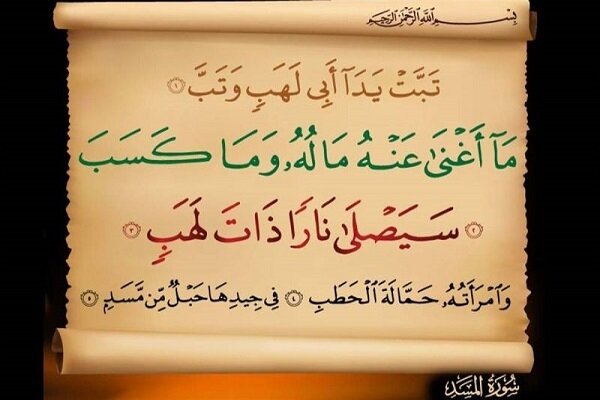 بِسْمِ اللَّهِ الرَّحْمَٰنِ الرَّحِيمِ
تَبَّتْ يَدَآ أَبِى لَهَبٍ وَتَبَّ ١
مَآ أَغْنَىٰ عَنْهُ مَالُهُۥ وَمَا كَسَبَ
٢ سَيَصْلَىٰ نَارًا ذَاتَ لَهَبٍ ٣
وَٱمْرَأَتُهُۥ حَمَّالَةَ ٱلْحَطَبِ ٤ فِى جِيدِهَا حَبْلٌ مِّن مَّسَدٍ ٥
سُورَةُ المَسَد